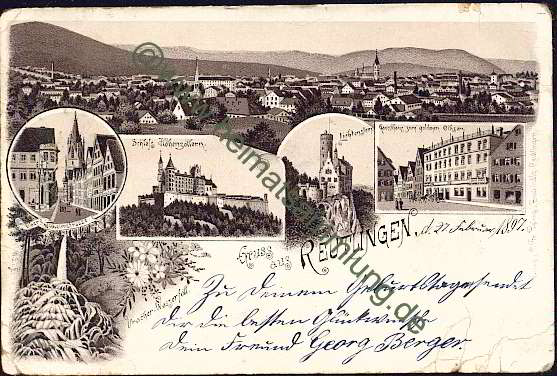 Schloß Hohenzollern.
Lichtenstein
Gasthaus zum goldnen Ochsen
Gruss aus REUTLINGEN, d. 27 Februar 1897.
Uracher Wasserfall
Zu Deinem Geburtstage sendet
Dir die besten Glückwünsche
Dein Freund Georg Berger
© www.heimatsammlung.de